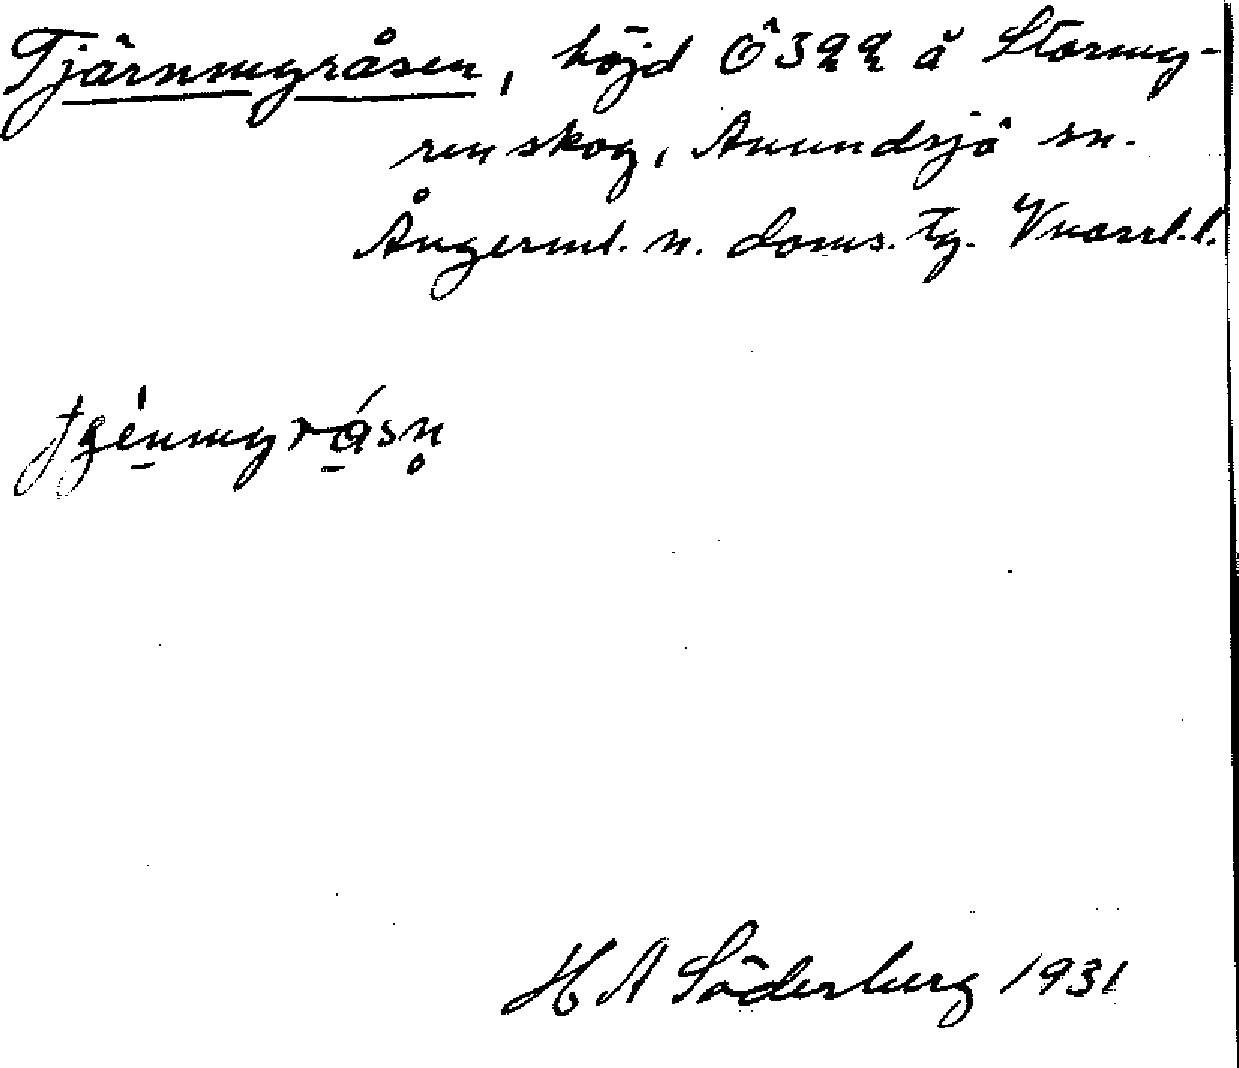 Tjärnmyråsen, höjd Ö 322 å Stormy-
ren skog, Anundsjö sn.
Ångerml. n. doms. tg. Vnorrl. l.
H A Söderberg 1931